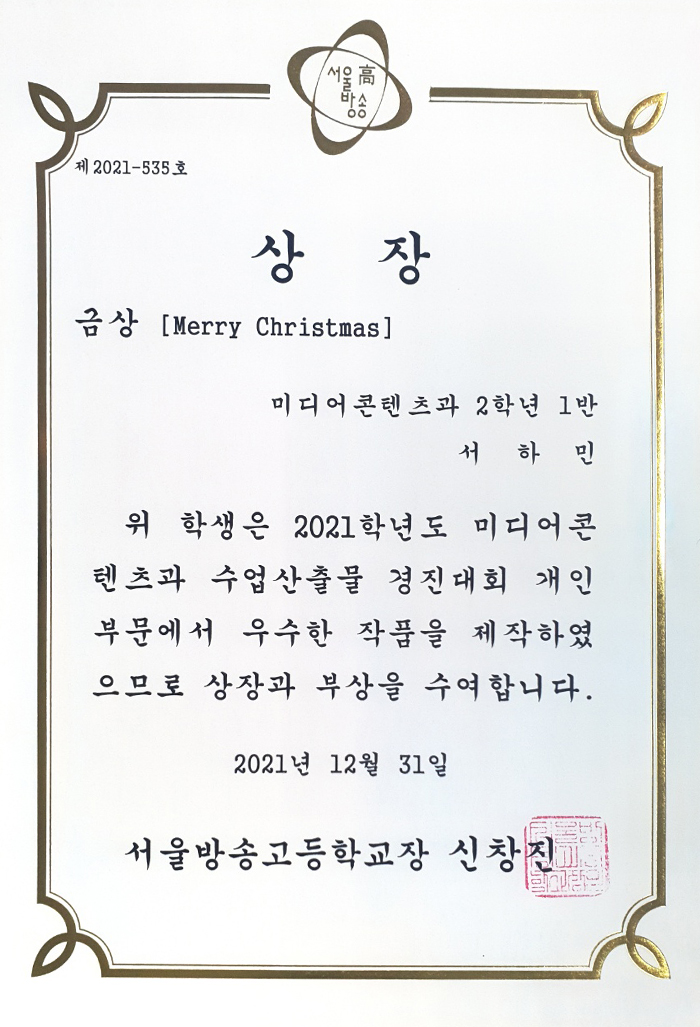 서울高
방송
제2021-535호
상 장
금상 [Merry Christmas]
미디어콘텐츠과 2학년 1반
서 하 민
위 학생은 2021학년도 미디어콘
텐츠과 수업산출물 경진대회 개인
부문에서 우수한 작품을 제작하였
으므로 상장과 부상을 수여합니다.
2021년 12월 31일
서울방송고등학교장 신창진